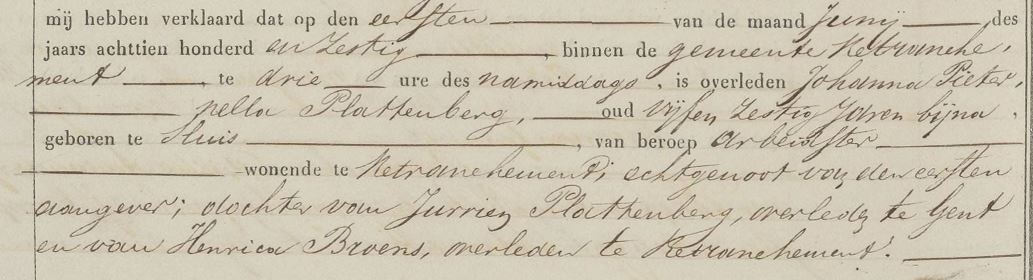 mij hebben verklaard dat op den eersten van de maand Junij, des
jaars achttien honderd en Zestig, binnen de gemeente Retranche,
ment te drie ure des namiddags, is overleden Johanna Pieter,
nella Plattenberg, oud vijfen Zestig Jaren bijna,
geboren te Sluis, van beroep Arbeidster
wonende te Retranchement; echtgenoot van den eersten
aangever; dochter van Jurrien Plattenberg, overleden te Gent
en van Henrica Broens, overleden te Retranchement.